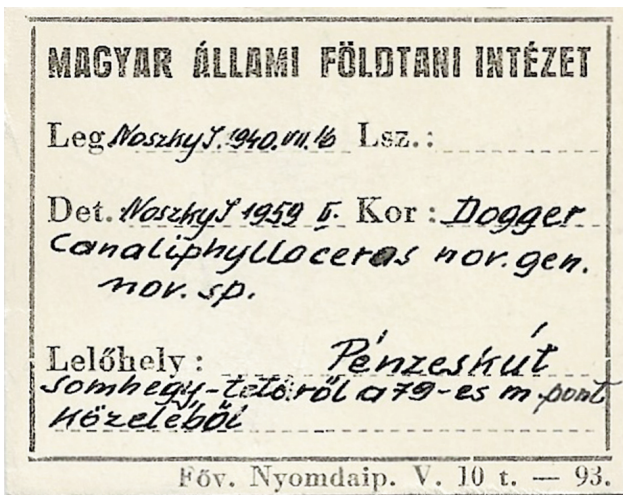 MAGYAR ÁLLAMI FÖLDTANI INTÉZET
Leg Noszky J. 1940. VII. 16 Lsz.:
Det. Noszky J 1959 II. Kor: Dogger
Canaliphylloceras nov. gen.
nov. sp.
Lelőhely: Pénzeskút
Somhegy-tetőről a 79-es m. pont
közeléből
Főv. Nyomdaip. V. 10 t. — 93.